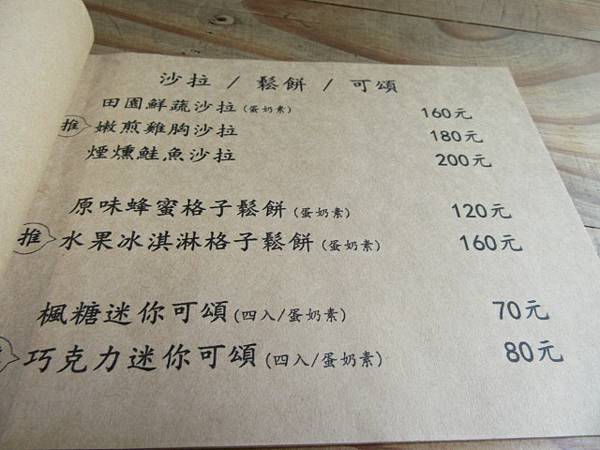 沙拉 / 鬆餅 / 可頌
田園鮮蔬沙拉(蛋奶素) 160元
推 嫩煎雞胸沙拉 180元
煙燻鮭魚沙拉 200元
原味蜂蜜格子鬆餅(蛋奶素) 120元
推 水果冰淇淋格子鬆餅(蛋奶素) 160元
楓糖迷你可頌(四入/蛋奶素) 70元
巧克力迷你可頌(四入/蛋奶素) 80元